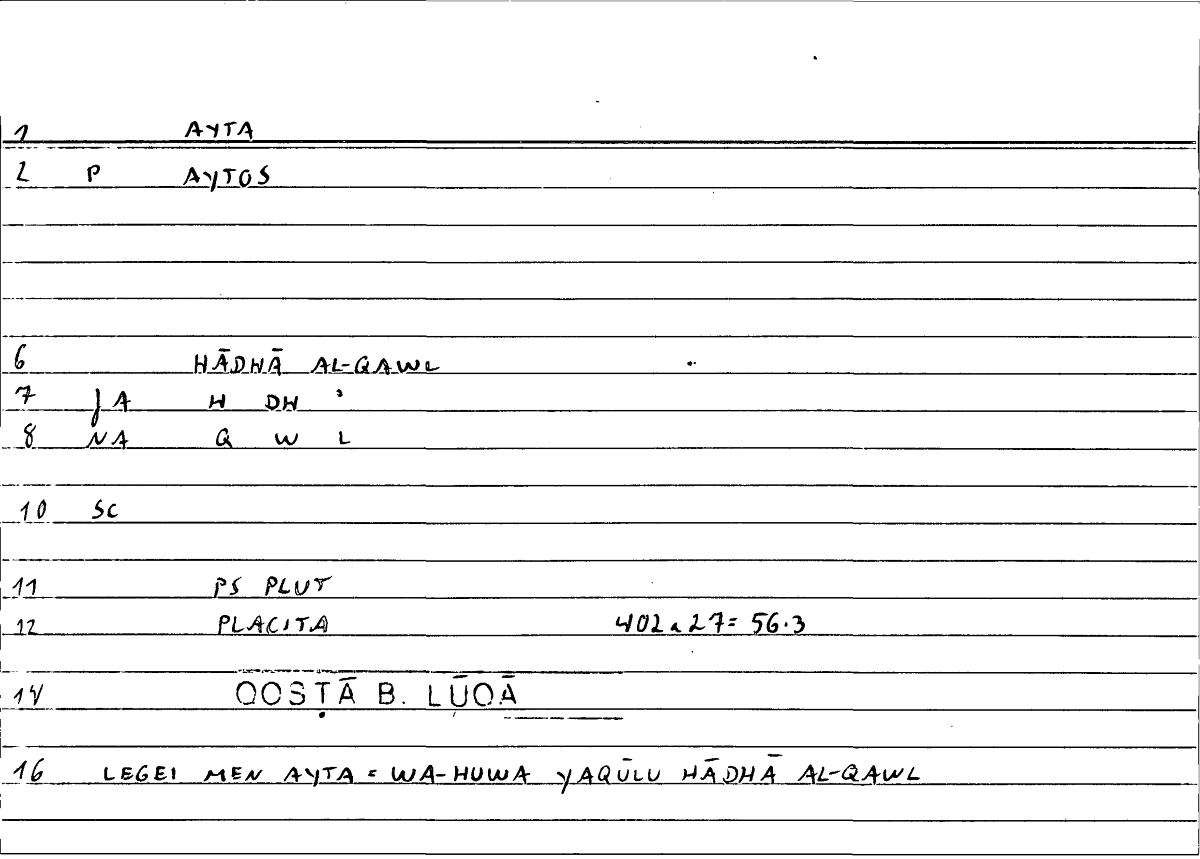 1 AYTA
2 P AYTOS
6 HĀDHĀ AL-QAWL
7 JA H DH ʾ
8 NA Q W L
10 SC
11 PS PLUT
12 PLACITA 402a27= 56.3
14 QOSṬĀ B. LŪQĀ
16 LEGEI MEN AYTA = WA-HUWA YAQŪLU HĀDHĀ AL-QAWL